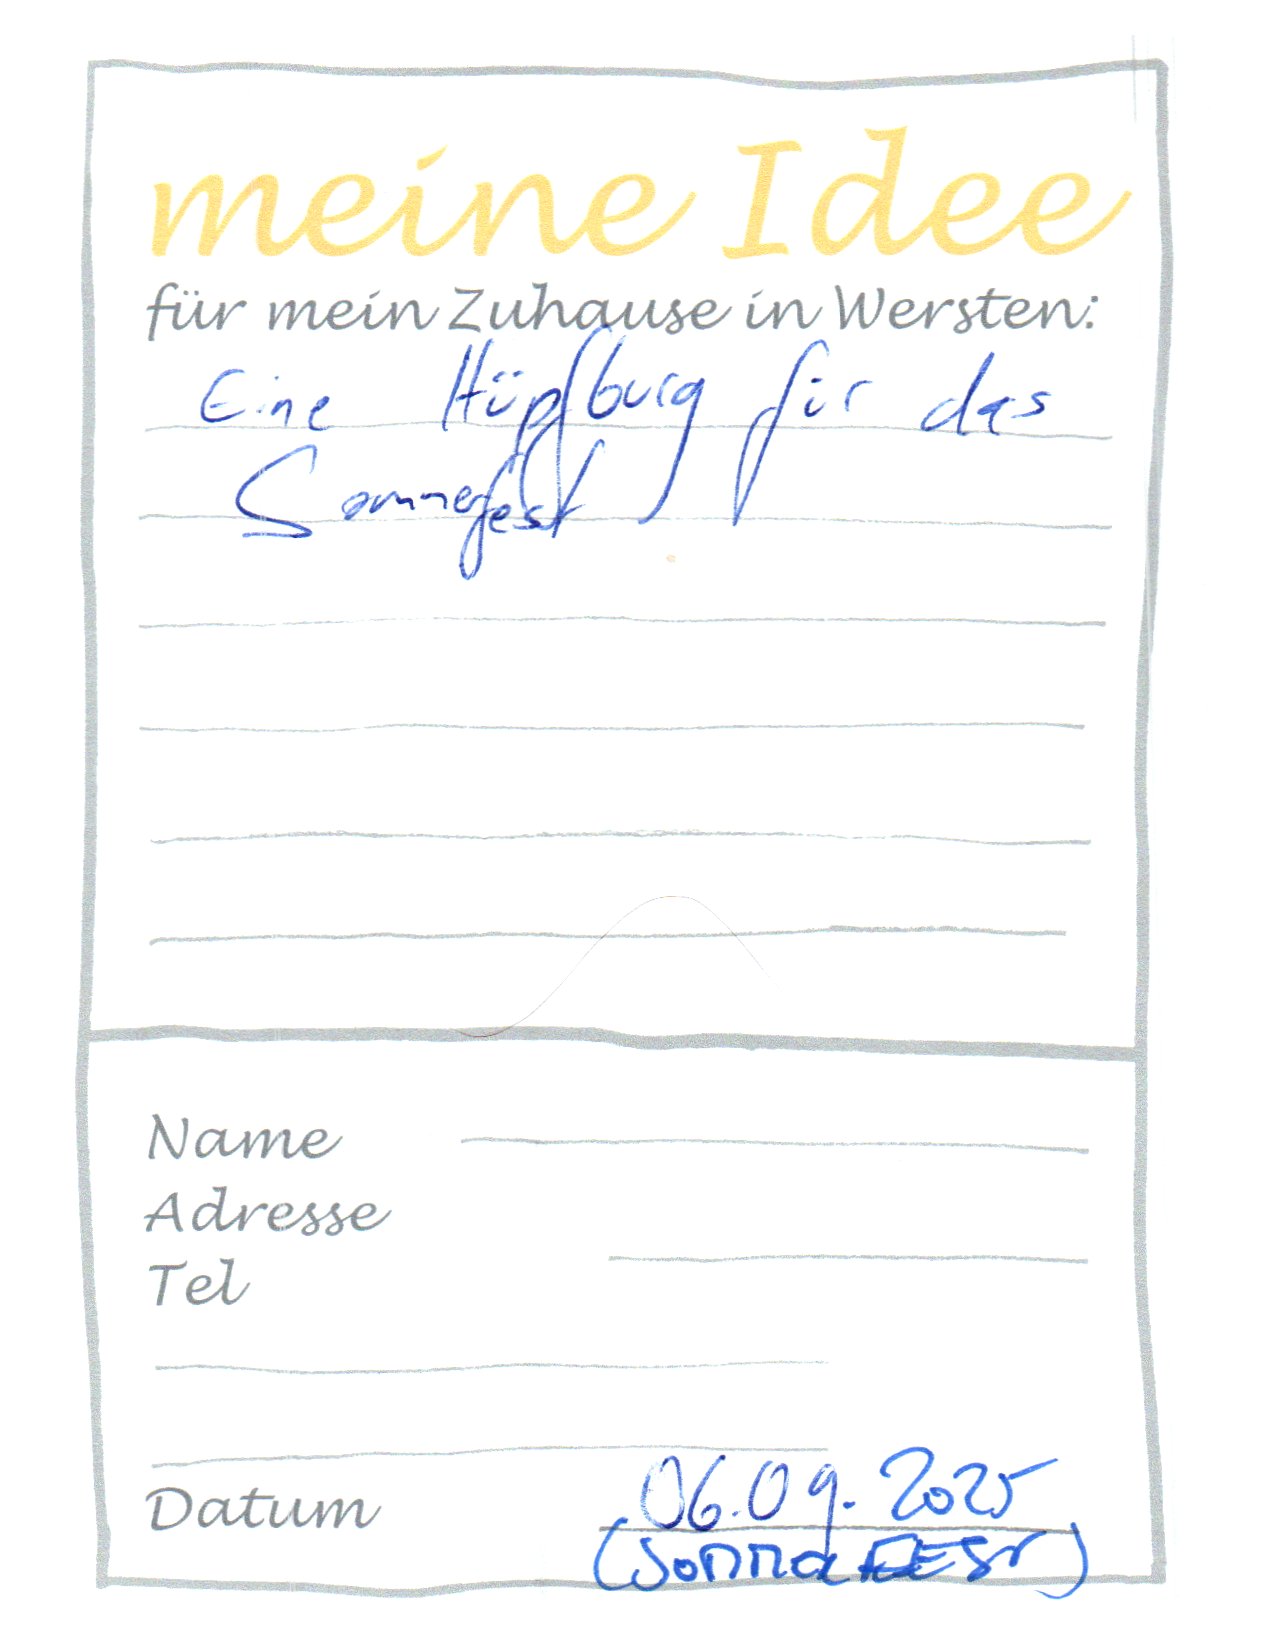 meine Idee
für mein Zuhause in Wersten:
Eine Hüpfburg für das
Sommerfest
Name
Adresse
Tel
Datum 06.09.2025